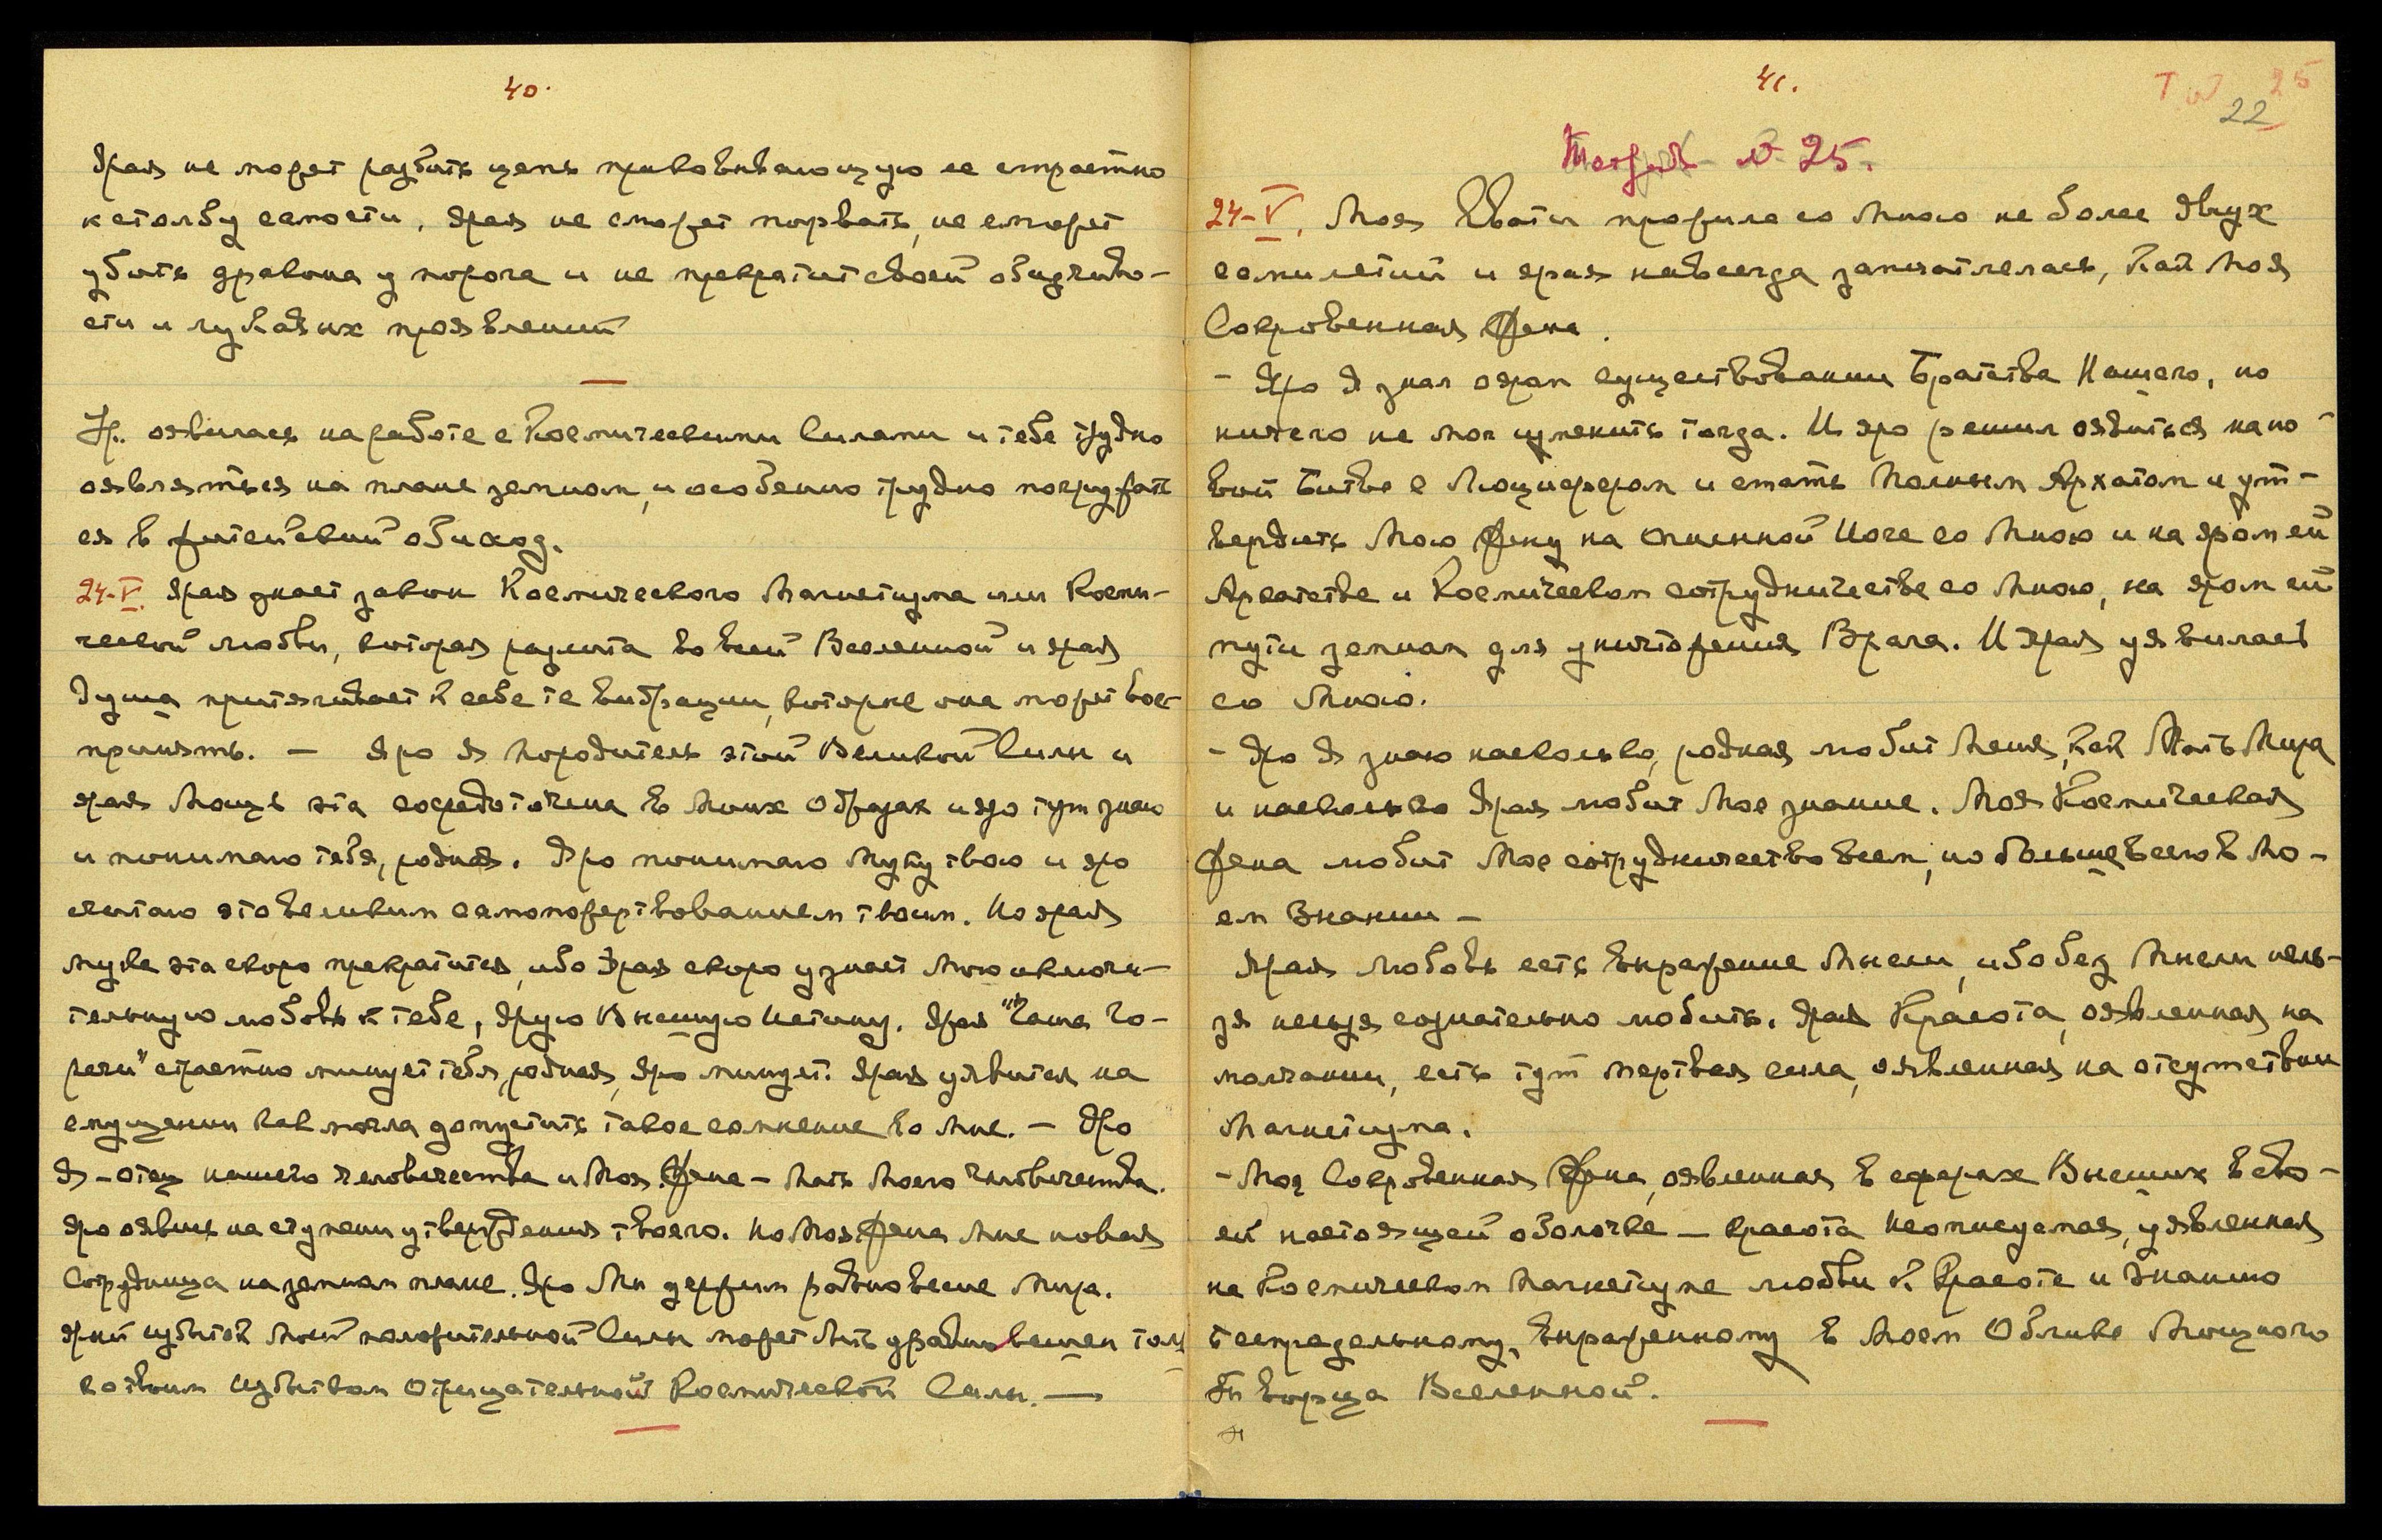 40.
Ярая не может разбить цепь приковывающую ее страстно
к столбу самости, ярая не сможет порвать, не сможет
убить дракона у порога и не прекратит своей обидчиво-
сти и лукавых проявлений
Ур. оявилась на работе с Космическими Силами и тебе трудно
оявляться на плане земном, и особенно трудно погружать
ся в житейский обиход.
24-V. Ярая знает закон Космического Магнетизма или Косми-
ческой любви, которая разлита во всей Вселенной и ярая
душа притягивает к себе те вибрации, которые она может вос-
принять. — Яро Я Породитель этой Великой Силы и
ярая Мощь эта сосредоточена в Моих Образах и яро тут знаю
и понимаю тебя, родная. Яро понимаю муку твою и яро
считаю это великим самопожертвованием твоим. Но ярая
мука эта скоро прекратится, ибо Ярая скоро узнает Мою исключи-
тельную любовь к тебе, ярую Высшую Истину. Ярая "Чаша Го-
речи" страстно минует тебя, родная, яро минует. Ярая уявится на
смущении как могла допустить такое сомнение во Мне. — Яро
Я - Отец нашего человечества и Моя Жена - Мать Моего Человечества.
Яро оявись на ступени утверждения твоего. Но Моя Жена Мне новая
Сотрудница на земном плане. Яро Мы держим равновесие Мира.
Ярый избыток Моей положительной Силы может быть уравновешен толь
ко твоим избытком отрицательной Космической Силы. —
41.
22
25
Тетрадь № 25.
24-V. Моя Свати прожила со Мною не более двух
семилетий и ярая навсегда запечатлелась, как Моя
Сокровенная Жена.
- Яро Я знал о яром существовании Братства Нашего, но
ничего не мог изменить тогда. И яро решил оявиться на но-
вой Битве с Люцифером и стать Полным Архатом и ут-
вердить Мою Жену на Огненной Йоге со Мною и на яром ей
Архатстве и Космическом сотрудничестве со Мною, на яром ей
пути земном для уничтожения Врага. И Ярая уявилась
со Мною.
- Яро Я знаю насколько, родная любит Меня, как Мать Мира
и насколько Ярая любит Мое знание. Моя Космическая
Жена любит Мое сотрудничество всем, но больше всего в Мо-
ем Знании —
Ярая Любовь есть выражение Мысли, ибо без Мысли нель-
зя нельзя сознательно любить. Ярая Красота, оявленная на
молчании, есть тут мертвая сила, оявленная на отсутствии
Магнетизма.
- Моя Сокровенная Жена, оявленная в сферах Высших в сво-
ей настоящей оболочке — красота неописуемая, уявленная
на Космическом Магнетизме любви к Красоте и Знанию
Беспредельному, выраженному в Моем Облике Мощного
Творца Вселенной.